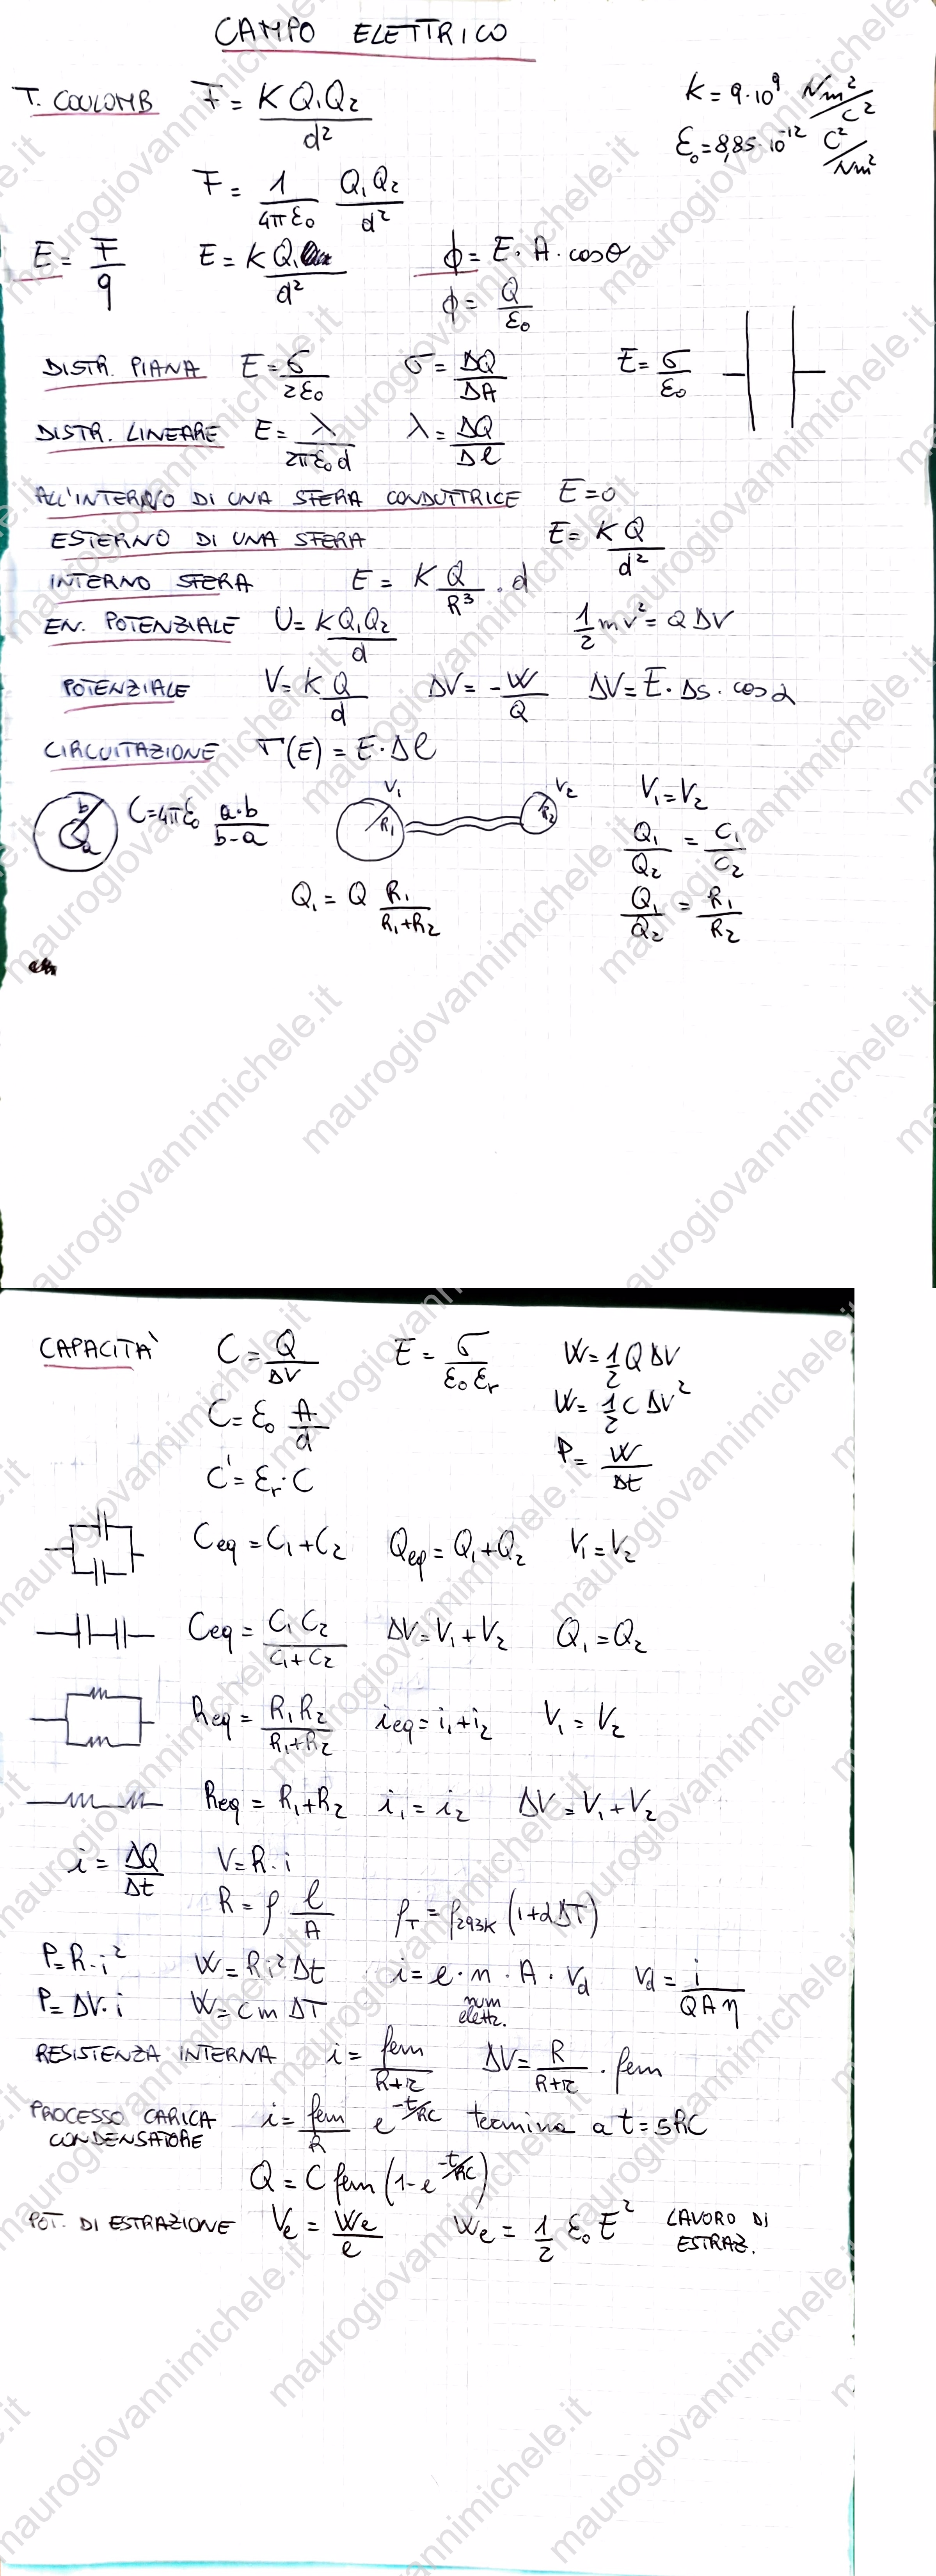 CAMPO ELETTRICO
T. COULOMB F = K Q₁Q₂ / d² K = 9·10⁹ Nm²/C²
ε₀ = 8,85·10⁻¹² C²/Nm²
F = 1/4πε₀ Q₁Q₂/d²
E = F/q E = K Q₁/d² ϕ = E · A · cosθ
ϕ = Q/ε₀
DISTR. PIANA E = σ/2ε₀ σ = ΔQ/ΔA E = σ/ε₀
DISTR. LINEARE E = λ/2πε₀d λ = ΔQ/Δl
ALL'INTERNO DI UNA SFERA CONDUTTRICE E = 0
ESTERNO DI UNA SFERA E = K Q/d²
INTERNO SFERA E = K Q/R³ · d
EN. POTENZIALE U = K Q₁Q₂/d 1/2 mv² = Q ΔV
POTENZIALE V = K Q/d ΔV = -W/Q ΔV = E · Δs · cos α
CIRCUITAZIONE Γ(E) = E · Δl
b a C = 4πε₀ a·b/b-a V₁ R₁ V₂ R₂ V₁ = V₂
Q₁/Q₂ = C₁/C₂
Q₁ = Q R₁/R₁+R₂ Q₁/Q₂ = R₁/R₂
CAPACITÀ C = Q/ΔV E = σ/ε₀εr W = 1/2 Q ΔV
C = ε₀ A/d W = 1/2 C ΔV²
C' = εr · C P = W/Δt
Ceq = C₁ + C₂ Qeq = Q₁ + Q₂ V₁ = V₂
Ceq = C₁C₂/C₁+C₂ ΔV = V₁ + V₂ Q₁ = Q₂
Req = R₁R₂/R₁+R₂ ieq = i₁ + i₂ V₁ = V₂
Req = R₁ + R₂ i₁ = i₂ ΔV = V₁ + V₂
i = ΔQ/Δt V = R · i
R = ρ l/A ρT = ρ293K (1 + αΔT)
P = R · i² W = R i² Δt i = e · n · A · Vd Vd = i/QAη
P = ΔV · i W = c m ΔT num elettr.
RESISTENZA INTERNA i = fem/R+r ΔV = R/R+r · fem
PROCESSO CARICA CONDENSATORE i = fem/R e^-t/RC termina a t = 5RC
Q = C fem (1 - e^-t/RC)
POT. DI ESTRAZIONE Ve = We/e We = 1/2 ε₀ E² LAVORO DI ESTRAZ.
maurogiovannimichele.it